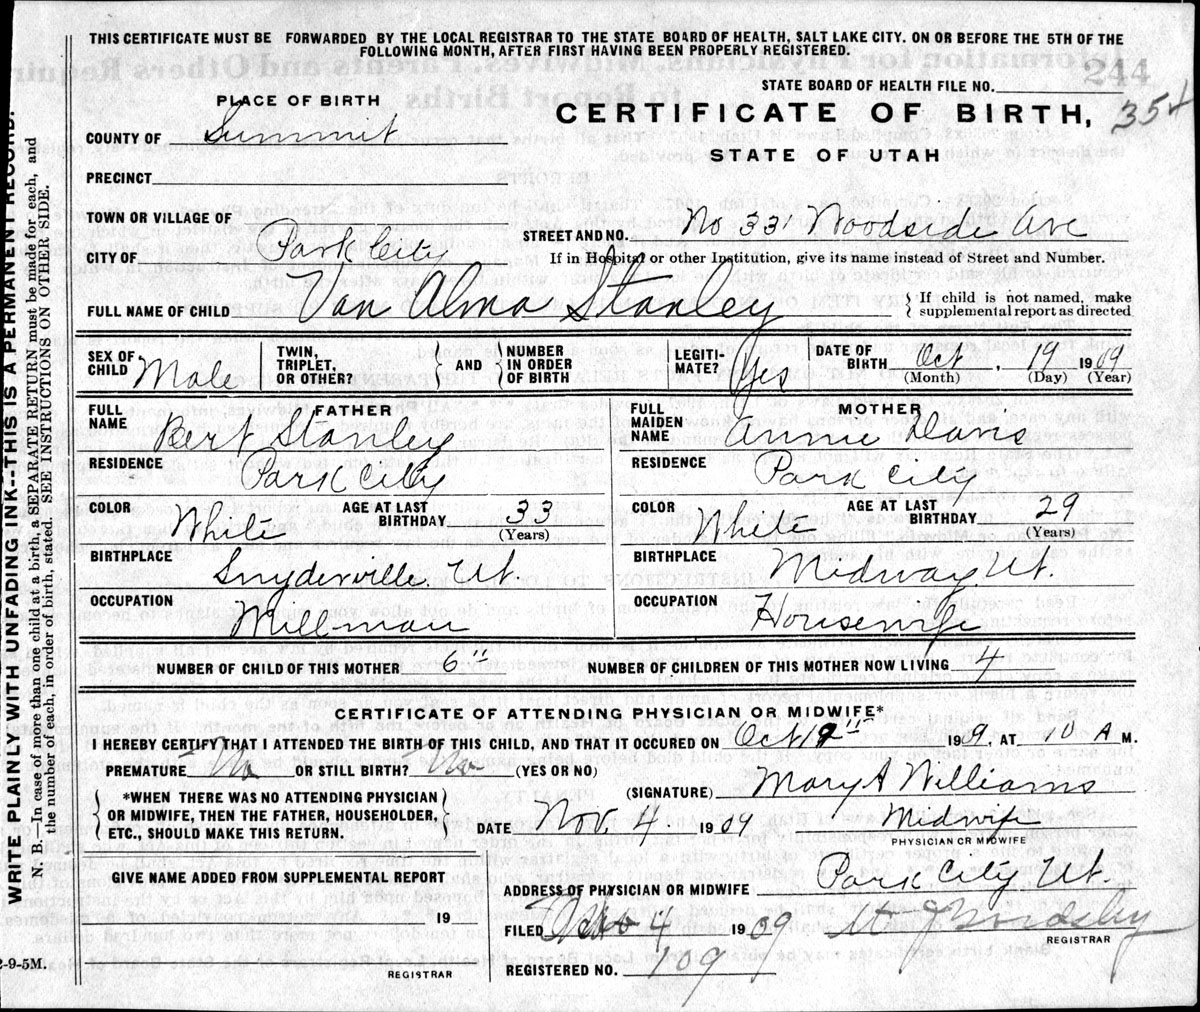 THIS CERTIFICATE MUST BE FORWARDED BY THE LOCAL REGISTRAR TO THE STATE BOARD OF HEALTH, SALT LAKE CITY. ON OR BEFORE THE 5TH OF THE
FOLLOWING MONTH, AFTER FIRST HAVING BEEN PROPERLY REGISTERED.
244
STATE BOARD OF HEALTH FILE NO.
PLACE OF BIRTH
CERTIFICATE OF BIRTH, 354
COUNTY OF Summit
STATE OF UTAH
PRECINCT
TOWN OR VILLAGE OF
STREET AND NO. No 331 Woodside Ave
CITY OF Park City
If in Hospital or other Institution, give its name instead of Street and Number.
FULL NAME OF CHILD Van Alma Stanley
If child is not named, make
supplemental report as directed
SEX OF CHILD Male
TWIN, TRIPLET, OR OTHER?
AND
NUMBER IN ORDER OF BIRTH
LEGITI-MATE? Yes
DATE OF BIRTH Oct, 19 1909
(Month) (Day) (Year)
FATHER
FULL NAME Bert Stanley
RESIDENCE Park City
COLOR White
AGE AT LAST BIRTHDAY 33
(Years)
BIRTHPLACE Snyderville Ut
OCCUPATION Millman
MOTHER
FULL MAIDEN NAME Annie Davis
RESIDENCE Park City
COLOR White
AGE AT LAST BIRTHDAY 29
(Years)
BIRTHPLACE Midway Ut.
OCCUPATION Housewife
NUMBER OF CHILD OF THIS MOTHER 6" NUMBER OF CHILDREN OF THIS MOTHER NOW LIVING 4
CERTIFICATE OF ATTENDING PHYSICIAN OR MIDWIFE*
I HEREBY CERTIFY THAT I ATTENDED THE BIRTH OF THIS CHILD, AND THAT IT OCCURED ON Oct 19" 1909, AT 10 A M.
PREMATURE No OR STILL BIRTH? No (YES OR NO)
(SIGNATURE) Mary A Williams
*WHEN THERE WAS NO ATTENDING PHYSICIAN
OR MIDWIFE, THEN THE FATHER, HOUSEHOLDER,
ETC., SHOULD MAKE THIS RETURN.
DATE Nov. 4. 1909 Midwife
PHYSICIAN OR MIDWIFE
GIVE NAME ADDED FROM SUPPLEMENTAL REPORT
19
REGISTRAR
ADDRESS OF PHYSICIAN OR MIDWIFE Park City Ut.
FILED 4 1909
REGISTRAR
REGISTERED NO. 109
2-9-5M.
WRITE PLAINLY WITH UNFADING INK--THIS IS A PERMANENT RECORD.
N. B.—In case of more than one child at a birth, a SEPARATE RETURN must be made for each, and
the number of each, in order of birth, stated. SEE INSTRUCTIONS ON OTHER SIDE.